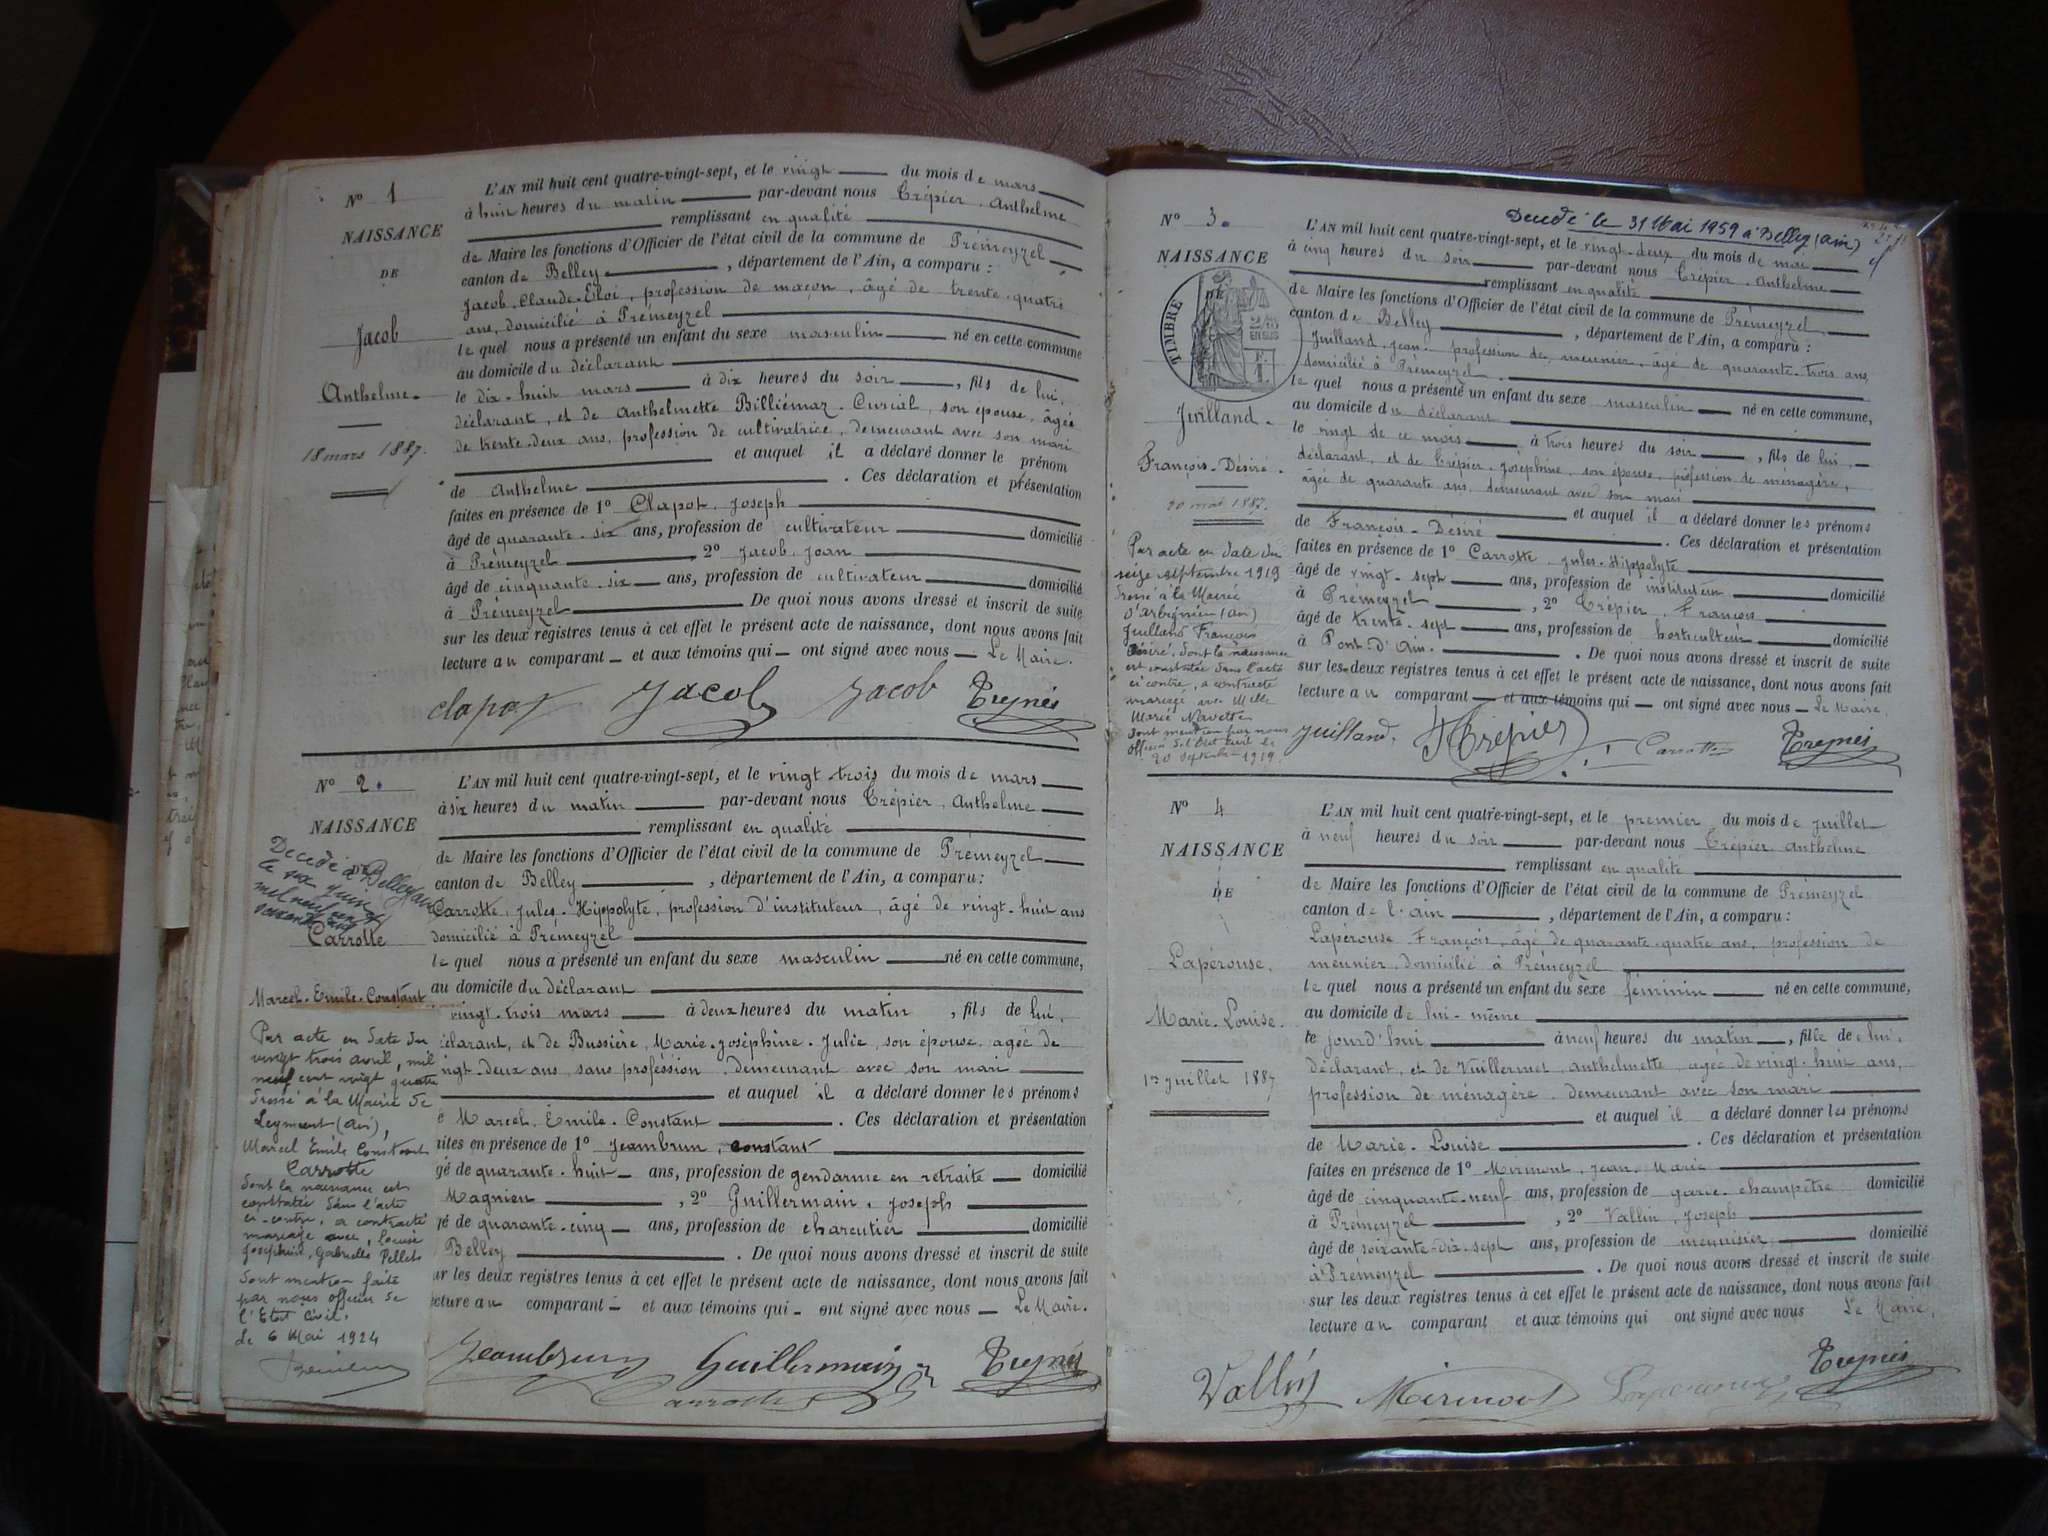 N° 1
NAISSANCE
DE
Jacob
Anthelme.
18 mars 1887.
L'AN mil huit cent quatre-vingt-sept, et le vingt du mois de mars
à huit heures du matin par-devant nous Trépier, Anthelme
remplissant en qualité
de Maire les fonctions d'Officier de l'état civil de la commune de Prémeyzel
canton de Belley, département de l'Ain, a comparu :
Jacob Claude-Eloi, profession de maçon, âgé de trente-quatre
ans, domicilié à Prémeyzel
lequel nous a présenté un enfant du sexe masculin né en cette commune
au domicile du déclarant
le dix-huit mars à dix heures du soir, fils de lui,
déclarant, et de Anthelmette Billiémaz-Curial, son épouse, âgée
de trente-deux ans, profession de cultivatrice, demeurant avec son mari
et auquel il a déclaré donner le prénom
de Anthelme. Ces déclaration et présentation
faites en présence de 1° Clapot, Joseph
âgé de quarante-six ans, profession de cultivateur domicilié
à Prémeyzel 2° Jacob, Jean
âgé de cinquante-six ans, profession de cultivateur domicilié
à Prémeyzel De quoi nous avons dressé et inscrit de suite
sur les deux registres tenus à cet effet le présent acte de naissance, dont nous avons fait
lecture au comparant et aux témoins qui ont signé avec nous Le Maire.
clapot Jacob Jacob
N° 2.
NAISSANCE
DE
Décédé à Belley
le six juin
mil neuf cent
Carrotte
Marcel-Emile-Constant
Par acte en date du
vingt trois avril, mil
neuf cent vingt quatre
dressé à la Mairie de
Leyment (Ain),
Marcel Emile Constant
Carrotte
dont la naissance est
constatée dans l'acte
ci-contre, a contracté
mariage avec, Louise
Joséphine, Gabrielle Pellet
dont mention faite
par nous officier de
l'Etat Civil.
Le 6 Mai 1924
L'AN mil huit cent quatre-vingt-sept, et le vingt trois du mois de mars
à six heures du matin par-devant nous Trépier, Anthelme
remplissant en qualité
de Maire les fonctions d'Officier de l'état civil de la commune de Prémeyzel
canton de Belley, département de l'Ain, a comparu :
Carrotte, Jules-Hippolyte, profession d'instituteur, âgé de vingt-huit ans
domicilié à Prémeyzel
lequel nous a présenté un enfant du sexe masculin né en cette commune,
au domicile du déclarant
vingt-trois mars à deux heures du matin, fils de lui,
clarant, et de Bussière, Marie-Joséphine-Julie, son épouse, agée de
ngt-deux ans, sans profession, demeurant avec son mari
et auquel il a déclaré donner les prénoms
e Marcel-Emile-Constant. Ces déclaration et présentation
ites en présence de 1° Jeambrun, constant
gé de quarante-huit ans, profession de gendarme en retraite domicilié
Magnieu, 2° Guillermain, Joseph
gé de quarante-cinq ans, profession de charcutier domicilié
Belley. De quoi nous avons dressé et inscrit de suite
ur les deux registres tenus à cet effet le présent acte de naissance, dont nous avons fait
cture au comparant et aux témoins qui ont signé avec nous Le Maire.
Jeambrun Guillermain
Carrotte
Décédé le 31 Mai 1959 à Belley (Ain)
N° 3.
NAISSANCE
DE
TIMBRE
Juilland.
François-Désiré.
20 mai 1887.
Par acte en date du
seize septembre 1919
dressé à la Mairie
d'Arbignieu (Ain)
Juilland François
Désiré, dont la naissance
est constatée dans l'acte
ci contre, a contracté
mariage avec Melle
Marie Navette
dont mention par nous
officier de l'Etat civil le
20 septembre 1919.
L'AN mil huit cent quatre-vingt-sept, et le vingt-deux du mois de mai
à cinq heures du soir par-devant nous Trépier, Anthelme
remplissant en qualité
de Maire les fonctions d'Officier de l'état civil de la commune de Prémeyzel
canton de Belley, département de l'Ain, a comparu :
Juilland, Jean, profession de meunier, âgé de quarante-trois ans,
domicilié à Prémeyzel.
lequel nous a présenté un enfant du sexe masculin né en cette commune,
au domicile du déclarant
le vingt de ce mois à trois heures du soir, fils de lui,
déclarant, et de Trépier, Joséphine, son épouse, profession de ménagère,
âgée de quarante ans, demeurant avec son mari
et auquel il a déclaré donner les prénoms
de François-Désiré. Ces déclaration et présentation
faites en présence de 1° Carrotte, Jules-Hippolyte
âgé de vingt-sept ans, profession de instituteur domicilié
à Prémeyzel, 2° Trépier, François
âgé de trente-sept ans, profession de horticulteur domicilié
à Pont-d'Ain. De quoi nous avons dressé et inscrit de suite
sur les deux registres tenus à cet effet le présent acte de naissance, dont nous avons fait
lecture au comparant et aux témoins qui ont signé avec nous Le Maire.
Juilland. Trépier Carrotte
N° 4
NAISSANCE
DE
Lapérouse.
Marie-Louise.
1er Juillet 1887
L'AN mil huit cent quatre-vingt-sept, et le premier du mois de juillet
à neuf heures du soir par-devant nous Trépier Anthelme
remplissant en qualité
de Maire les fonctions d'Officier de l'état civil de la commune de Prémeyzel
canton de l'ain, département de l'Ain, a comparu :
Lapérouse François, âgé de quarante-quatre ans, profession de
meunier, domicilié à Prémeyzel
lequel nous a présenté un enfant du sexe féminin né en cette commune,
au domicile de lui-même
le jourd'hui à neuf heures du matin, fille de lui,
déclarant, et de Vuillermet, anthelmette, agée de vingt-huit ans,
profession de ménagère, demeurant avec son mari
et auquel il a déclaré donner les prénoms
de Marie-Louise. Ces déclaration et présentation
faites en présence de 1° Mirmont, Jean-Marie
âgé de cinquante-neuf ans, profession de garde-champêtre domicilié
à Prémeyzel, 2° Vallin, Joseph
âgé de soixante-dix-sept ans, profession de menuisier, domicilié
à Prémeyzel. De quoi nous avons dressé et inscrit de suite
sur les deux registres tenus à cet effet le présent acte de naissance, dont nous avons fait
lecture au comparant et aux témoins qui ont signé avec nous Le Maire.
Vallin Mirmont